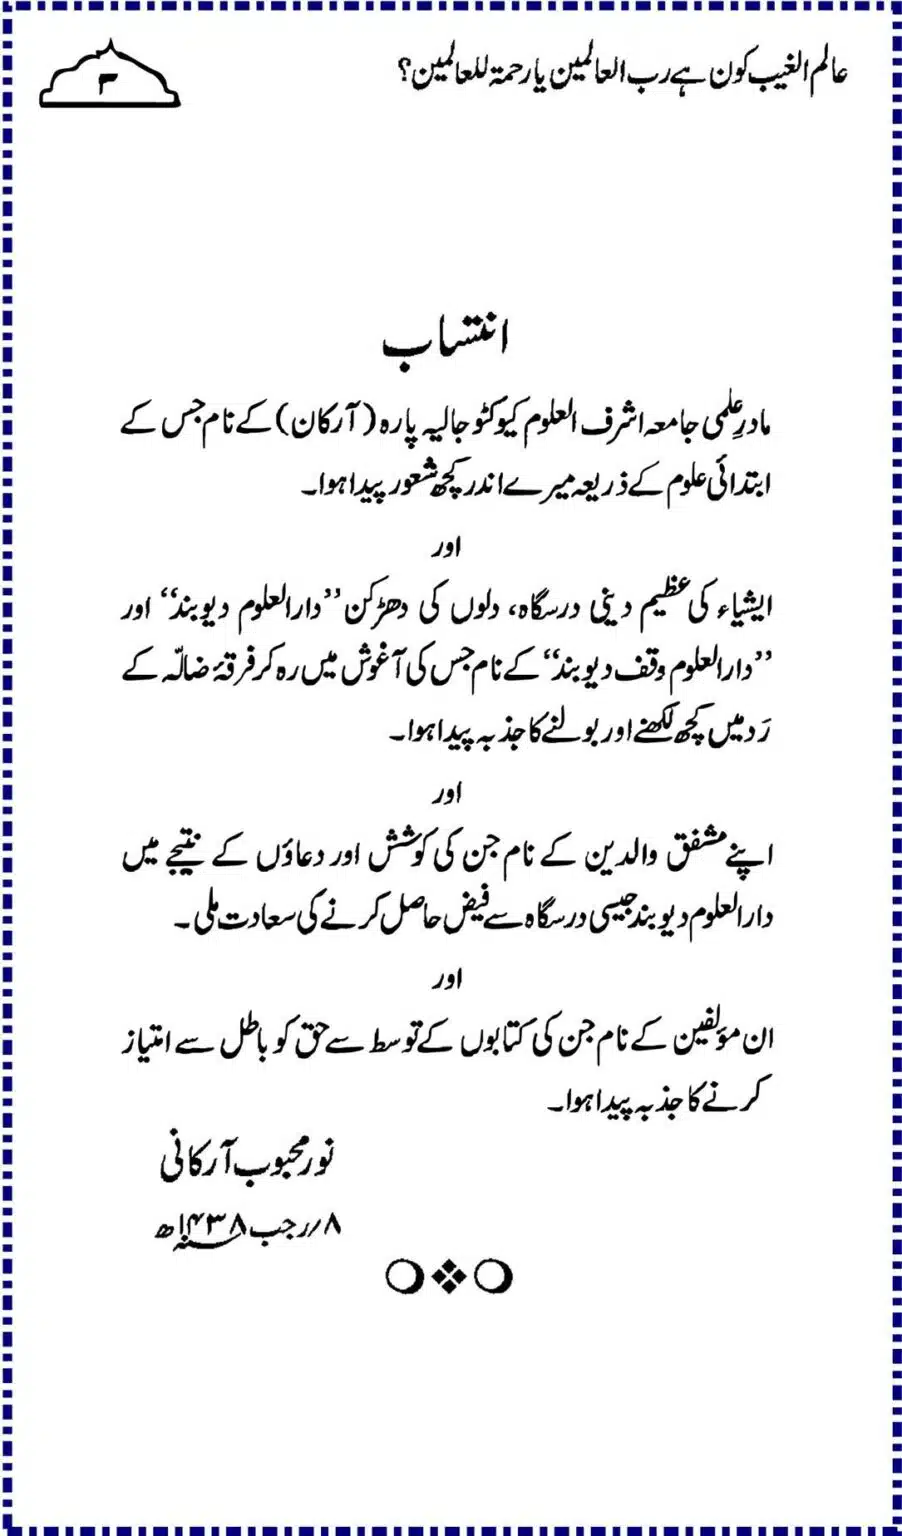 عالم الغیب کون ہے رب العالمین یا رحمۃ للعالمین؟
۳
انتساب
مادرِ علمی جامعہ اشرف العلوم کیوکٹو جالیہ پارہ (آرکان) کے نام جس کے
ابتدائی علوم کے ذریعہ میرے اندر کچھ شعور پیدا ہوا۔
اور
ایشیاء کی عظیم دینی درسگاہ، دلوں کی دھڑکن ’’دارالعلوم دیوبند‘‘ اور
’’دارالعلوم وقف دیوبند‘‘ کے نام جس کی آغوش میں رہ کر فرقۂ ضالّہ کے
رَد میں کچھ لکھنے اور بولنے کا جذبہ پیدا ہوا۔
اور
اپنے مشفق والدین کے نام جن کی کوشش اور دعاؤں کے نتیجے میں
دارالعلوم دیوبند جیسی درسگاہ سے فیض حاصل کرنے کی سعادت ملی۔
اور
ان مؤلفین کے نام جن کی کتابوں کے توسط سے حق کو باطل سے امتیاز
کرنے کا جذبہ پیدا ہوا۔
نور محبوب آرکانی
۸/رجب ۱۴۳۸ھ